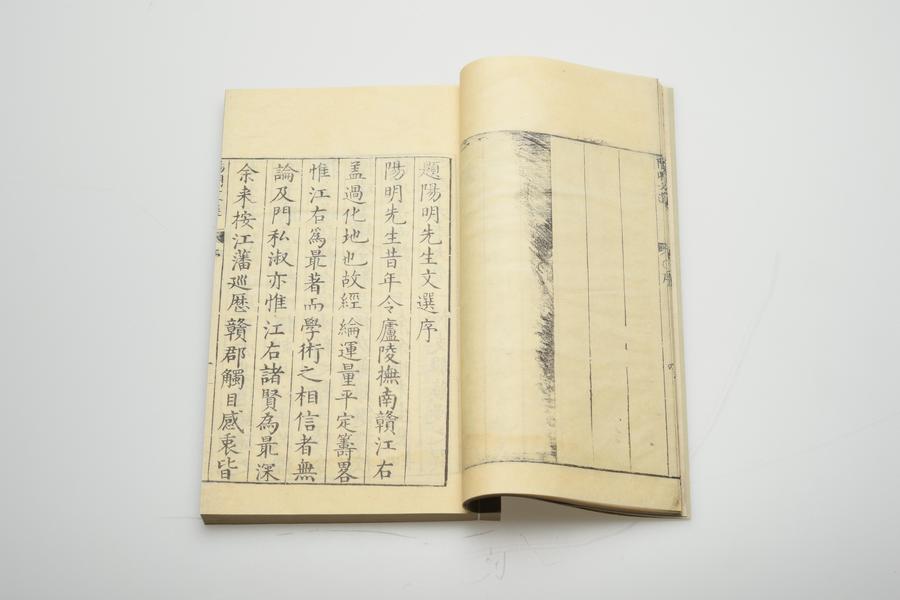 題陽明先生文選序
陽明先生昔年令廬陵撫南贛江右
盖過化地也故經綸運量平定籌畧
惟江右爲最著而學術之相信者無
論及門私淑亦惟江右諸賢為最深
余来按江藩廵歷贛郡觸目感衷皆